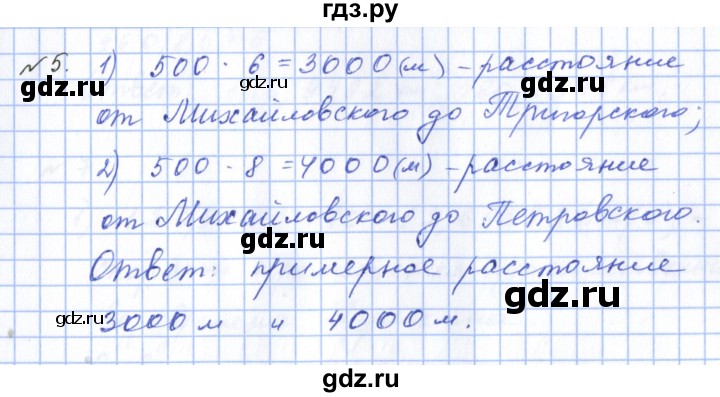 гдз.ру
№5. 1) 500 · 6 = 3000 (м) – расстояние
gdz.ru
gdz.ru
от Михайловского до Тригорского;
2) 500 · 8 = 4000 (м) – расстояние
gdz.ru
от Михайловского до Петровского.
gdz.ru
Ответ: примерное расстояние
gdz.ru
gdz.ru
3000 м и 4000 м.
gdz.ru